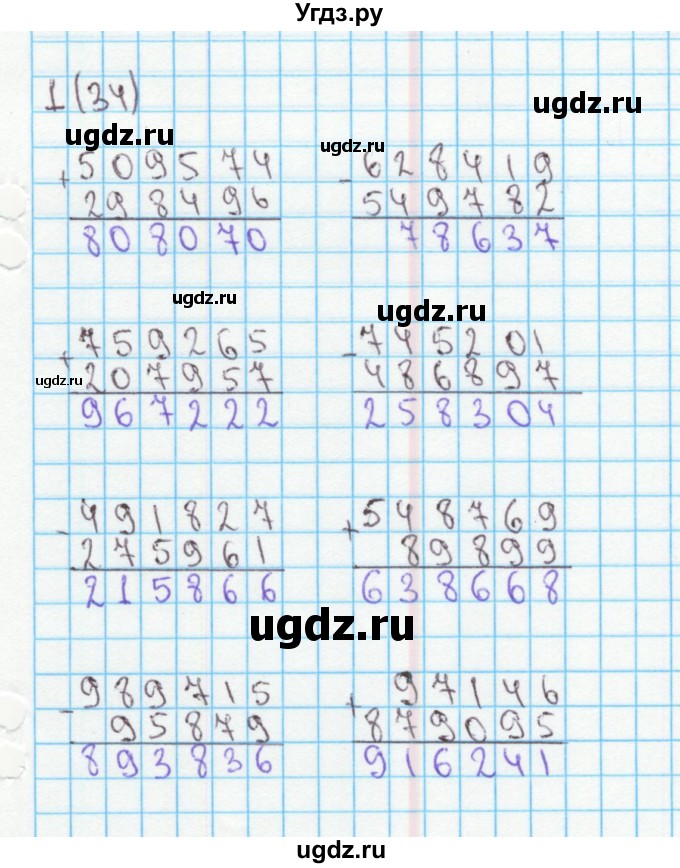 Угдз.ру
1 (34)
ugdz.ru
ugdz.ru
ugdz.ru
+ 509574
298496
808070
- 628419
549782
78637
ugdz.ru
ugdz.ru
ugdz.ru
+ 759265
207957
967222
- 745201
486897
258304
- 491827
275961
215866
+ 548769
89899
638668
ugdz.ru
- 989715
95879
893836
+ 97146
879095
916241
ugdz.ru